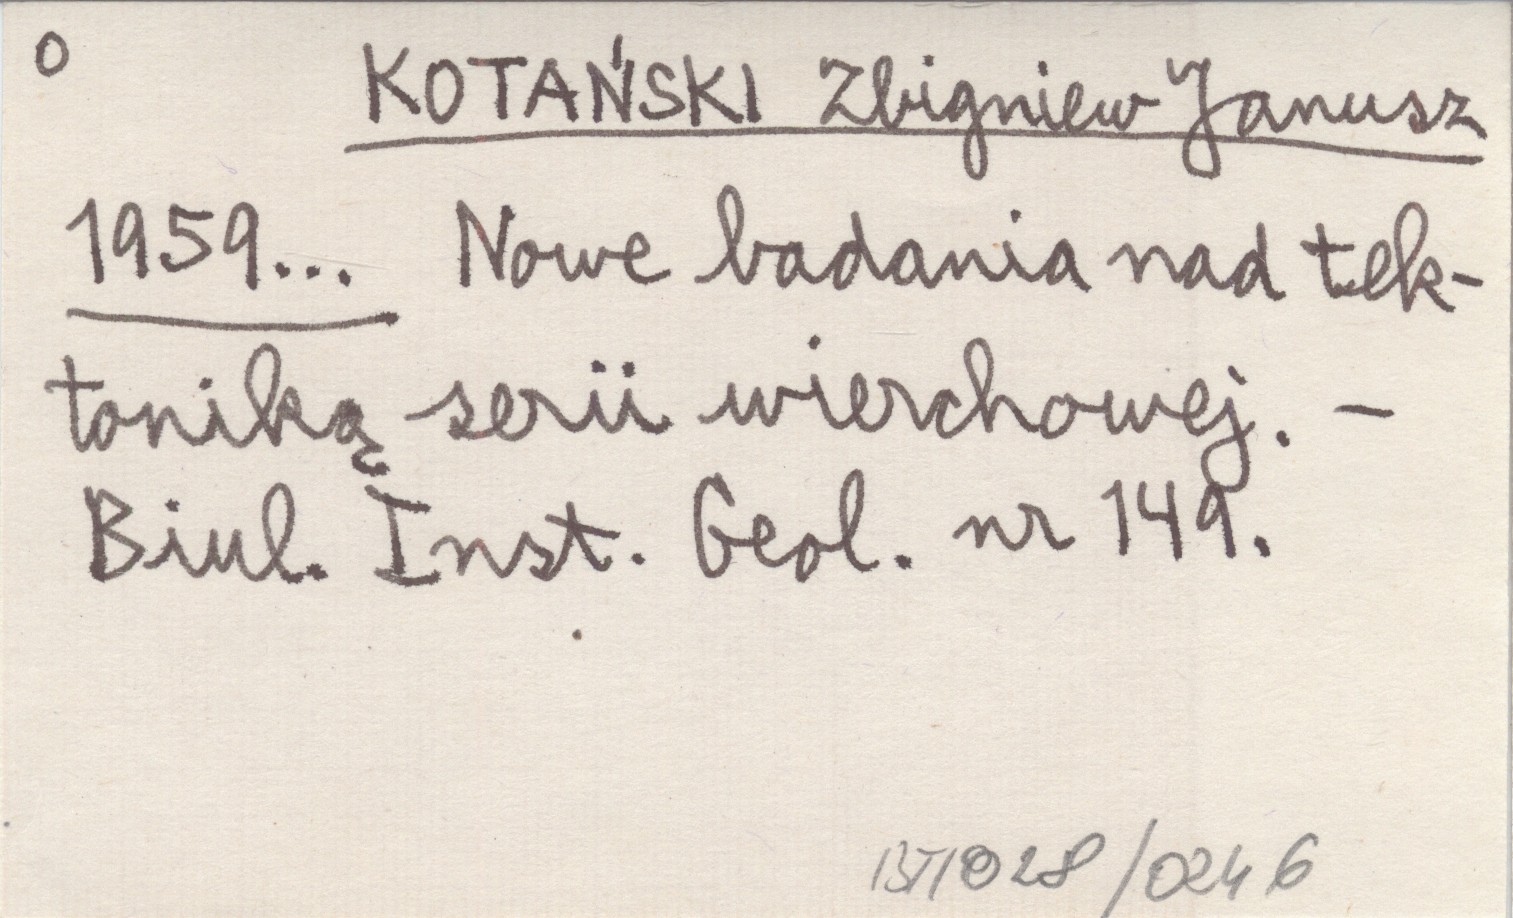 O KOTAŃSKI Zbigniew Janusz
1959... Nowe badania nad tek-
toniką serii wierchowej. -
Biul. Inst. Geol. nr 149.
BT/028/0246